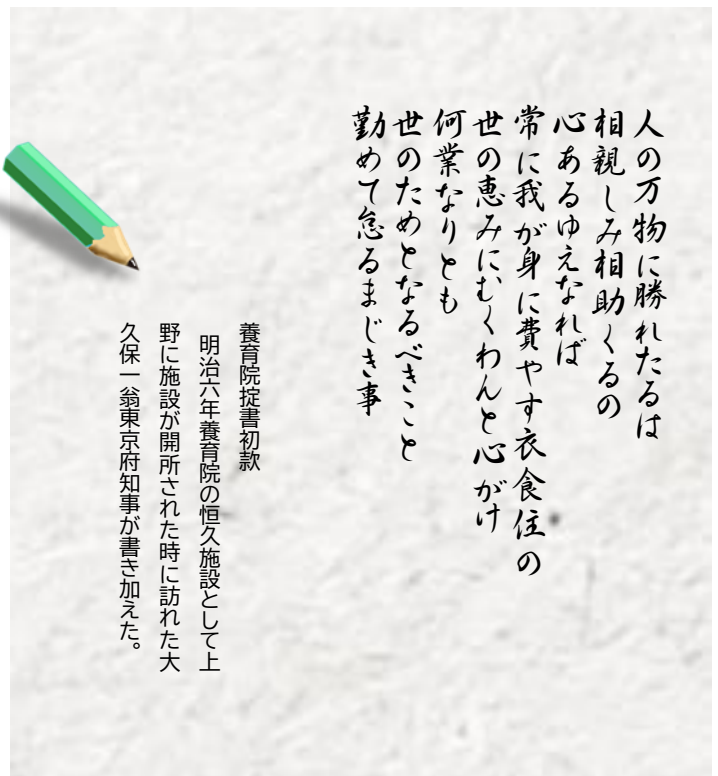 人の万物に勝れたるは
相親しみ相助くるの
心あるゆえなれば
常に我が身に費やす衣食住の
世の恵みにむくわんと心がけ
何業なりとも
世のためとなるべきこと
勤めて怠るまじき事
養育院掟書初款
明治六年養育院の恒久施設として上
野に施設が開所された時に訪れた大
久保一翁東京府知事が書き加えた。